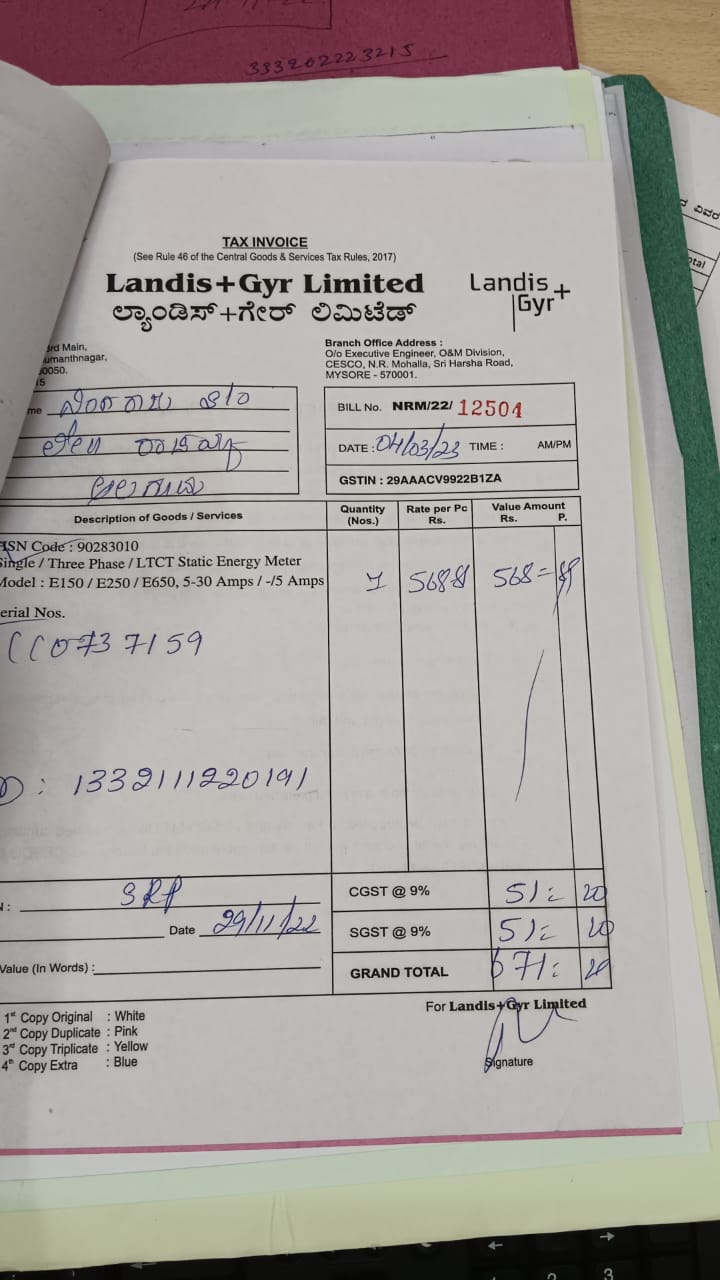 333202223215
TAX INVOICE
(See Rule 46 of the Central Goods & Services Tax Rules, 2017)
Landis+Gyr Limited
Landis+
Gyr
ಲ್ಯಾಂಡಿಸ್+ಗೇರ್ ಲಿಮಿಟೆಡ್
3rd Main,
umanthnagar,
0050.
Branch Office Address :
O/o Executive Engineer, O&M Division,
CESCO, N.R. Mohalla, Sri Harsha Road,
MYSORE - 570001.
me
S/o
BILL No. NRM/22/ 12504
DATE : 04/03/23 TIME : AM/PM
GSTIN : 29AAACV9922B1ZA
Description of Goods / Services
Quantity (Nos.)
Rate per Pc Rs.
Value Amount Rs. P.
HSN Code : 90283010
Single / Three Phase / LTCT Static Energy Meter
Model : E150 / E250 / E650, 5-30 Amps / -/5 Amps
1 568 568=
erial Nos.
CC0737159
: 1332111220191
SRP
Date 29/11/22
Value (In Words) :
CGST @ 9% 51= 20
SGST @ 9% 51= 20
GRAND TOTAL 671= 20
For Landis+Gyr Limited
Signature
1st Copy Original : White
2nd Copy Duplicate : Pink
3rd Copy Triplicate : Yellow
4th Copy Extra : Blue